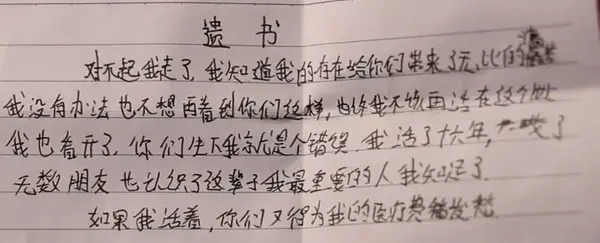 遗书
对不起我走了,我知道我的存在给你们带来了无比的
我没有办法也不想再看到你们这样,也许我不该再活在这个世
我也看开了,你们生下我就是个错误 我活了十六年,了
无数朋友也认识了这辈子我最重要的人我知足了
如果我活着,你们又得为我的医疗费犯愁